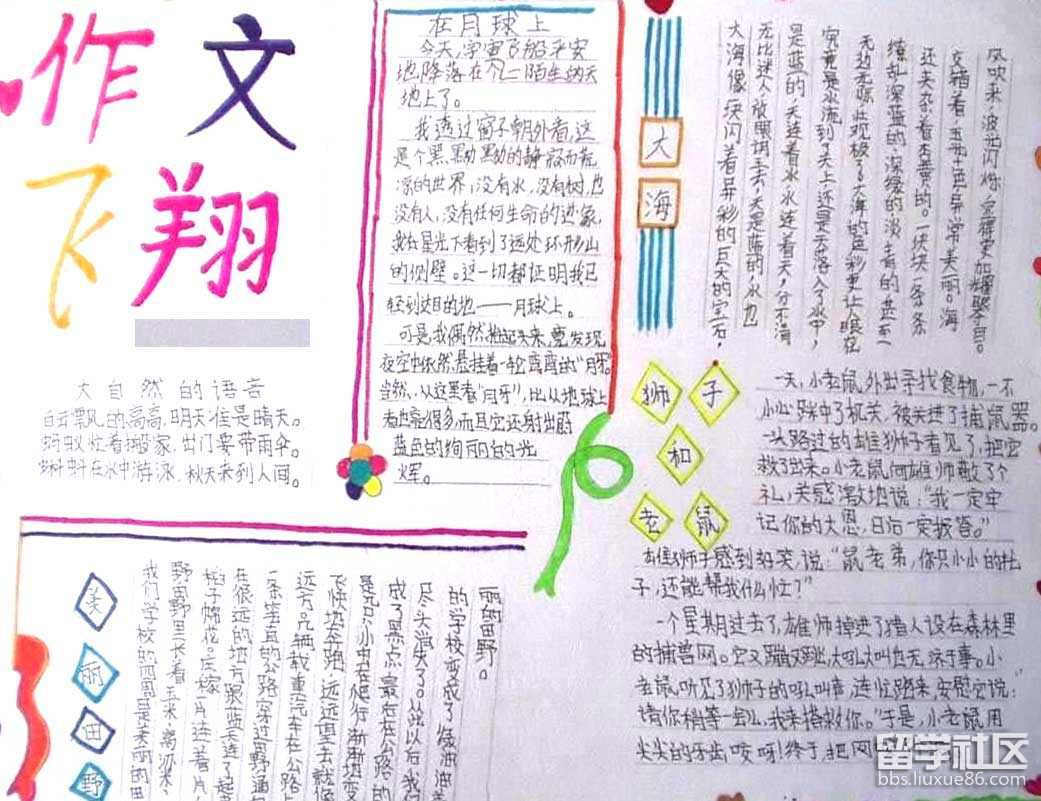 作文
飞翔
大自然的语言
白云飘的高高,明天准是晴天。
蚂蚁忙着搬家,出门要带雨伞。
蝌蚪在水中游泳,秋天来到人间。
在月球上
今天,宇宙飞船平安
地降落在个一陌生的天
地上了。
我透过窗子朝外看,这
是个黑黝黝的静寂而荒
凉的世界,没有水,没有树,也
没有人,没有任何生命的迹象,
我在星光下看到了远处环形山
的侧壁。这一切都证明我已
经到达目的地——月球上。
可是我偶然抬起头来,竟发现
夜空中依然悬挂着一轮弯弯的“月牙”
当然,从这里看“月牙”,比从地球上
看也亮很多,而且它还射出蔚
蓝色的绚丽的光
辉。
大海
风吹来,波光闪烁,显得更加耀眼夺目。
交错着,五光十色,异常美丽。海
还夹杂着杏黄的。一块块,一条条
缭乱,深蓝的,深绿的,淡青的
无边无际,此观极了,大海的色彩更让人眼花
究竟是水流到了天上,还是天落入了水中,
是蓝的,天连着水,水连着天,分不清
无比迷人,放眼望去,天是蓝的,水也
大海像一块闪着异彩的巨大的宝石,
狮子
和
老鼠
一天,小老鼠外出寻找食物,一不
小心踩中了机关,被关进了捕鼠器。
一头路过的雄狮子看见了,把它
救了出来。小老鼠向雄狮敬了个
礼,关感激地说:“我一定牢
记你的大恩,日后一定报答。”
雄狮子感到好笑,说:“鼠老弟,你只小小的肚
子,还能帮我什么忙?”
一个星期过去了,雄师掉进了猎人设在森林里
的捕兽网。它又蹦又跳,大吼大叫也无济于事。小
老鼠听见了狮子的吼叫声,连忙跑来,安慰它说:“
请你稍等一会儿,我来搭救你。”于是,小老鼠用
尖尖的牙齿咬呀!终于把网
美丽田野
丽的田野。
的学校变成了绿油油
尽头消失了。从此以后我们
成了黑点,最后在公路的
是只小虫在爬行,渐渐变
飞快奔跑,远远望去就像
远方几辆载重汽车在公路上
一条笔直的公路穿过田野通向
在很远的地方跟蓝天连了起
棉花。庄稼一片连着一片
野田野里长着玉米、高粱
我们学校的四周是美丽的田
留学社区
bbs.liuxue86.com